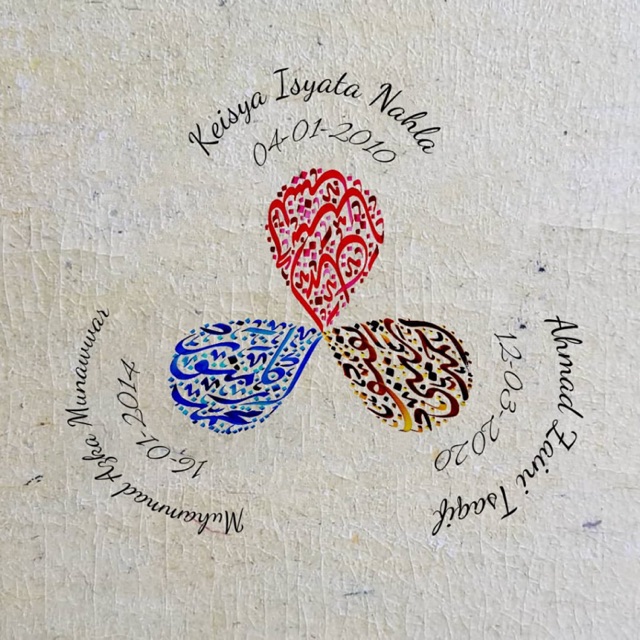 Keisya Isyata Nahla
04-01-2010
Ahmad Zaini Tsaqif
12-03-2020
Muhammad Azka Munawwar
16-01-2014